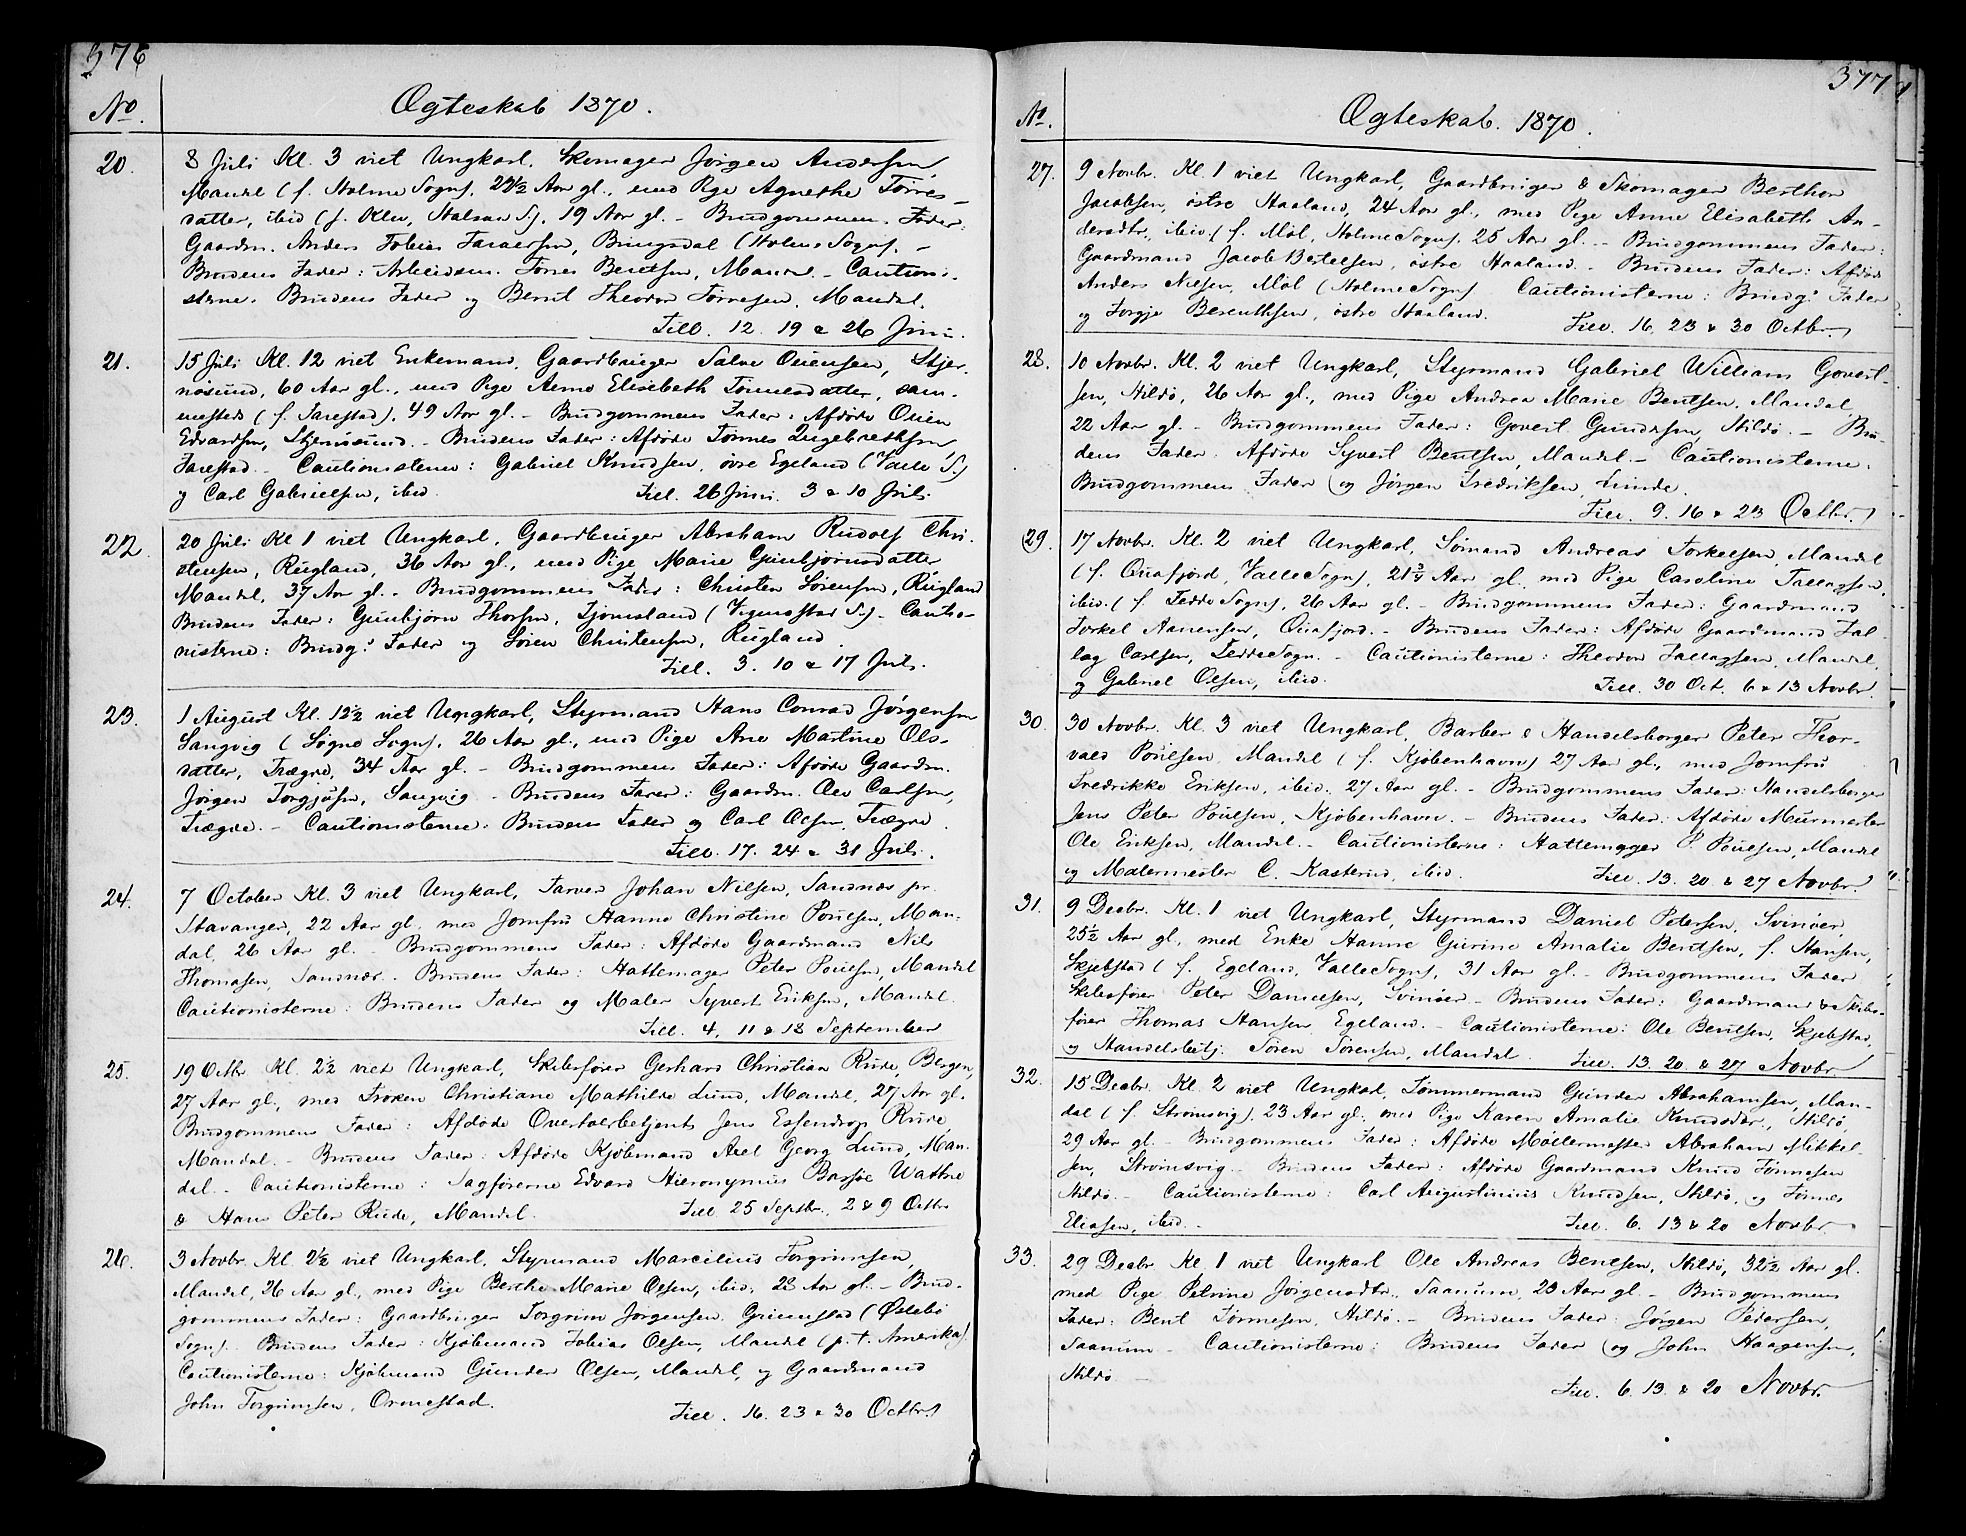 376
No. Ægteskab 1870.
20. 8 Juli Kl. 3 viet Ungkarl, Skomager Jørgen Andersen,
Mandal (f. Holme Sogn), 24½ Aar gl., med Pige Agnethe Torres-
datter, ibid (f. Klev, Halsaa S.), 19 Aar gl. - Brudgommens Fader:
Gaardm. Anders Tobias, Bringsdal (Holme Sogn). -
Brudens Fader: Arbeidsm. Torres Bentsen, Mandal. - Caution-
isterne: Brudens Fader og Bernt Theodor Torresen, Mandal.
Till. 12. 19 & 26 Juni.
21. 15 Juli Kl. 12 viet Enkemand, Gaardbruger Salve Osiensen, Stjer-
nøsund, 60 Aar gl., med Pige Anne Elisabeth Tønnesdatter, sam-
mesteds (f. Jarestad), 49 Aar gl. - Brudgommens Fader: Afdøde Osien
Edvardsen, Stjernøsund. - Brudens Fader: Afdøde Tønnes Ingebrethsen
Jarestad. - Cautionisterne: Gabriel Knudsen, øvre Egeland (Valle S.)
og Carl Gabrielsen, ibid. Till. 26 Juni. 3 & 10 Juli.
22. 20 Juli Kl 1 viet Ungkarl, Gaardbruger Abraham Rudolf Chri-
stensen, Rugland, 36 Aar gl., med Pige Marie Gunbjørnsdatter
Mandal, 37 Aar gl. - Brudgommens Fader: Christen Sørensen, Rugland
Brudens Fader: Gunbjørn Thorsen, Tjomsland (Vigmostad S.) - Cautio-
nisterne: Brudg.s Fader og Søren Christensen, Rugland.
Till. 3. 10 & 17 Juli.
23. 1 August Kl. 12½ viet Ungkarl, Styrmand Hans Conrad Jørgensen
Langvig (Søgne Sogn), 26 Aar gl., med Pige Ane Martine Ols-
datter, Trægde, 34 Aar gl. - Brudgommens Fader: Afdøde Gaardm.
Jørgen Torgjusen, Langvig - Brudens Fader: Gaardm. Ole Carlsen,
Trægde. - Cautionisterne: Brudens Fader og Carl Olsen, Trægde.
Till. 17. 24 & 31 Juli.
24. 7 October Kl. 3 viet Ungkarl, Farver Johan Nilsen, Sandnæs pr.
Stavanger, 22 Aar gl. med Jomfru Hanne Christine Poulsen, Man-
dal, 26 Aar gl. - Brudgommens Fader: Afdøde Gaardmand Nils
Thomasen, Sandnæs. - Brudens Fader: Hattemager Peter Poulsen, Mandal
Cautionisterne: Brudens Fader og Maler Syvert Eriksen, Mandal.
Till. 4, 11 & 18 September
25. 19 Octbr Kl. 2½ viet Ungkarl, Skibsfører Gerhard Christian Rude, Bergen,
27 Aar gl., med Frøken Christiane Mathilde Lund, Mandal, 27 Aar gl.
Brudgommens Fader: Afdøde Overtoldbetjent Jens Essendrop Rude
Mandal. Brudens Fader: Afdøde Kjøbmand Axel Georg Lund, Man-
dal. - Cautionisterne: Sagførerne Edvard Hieronymus Bassøe Wattne
& Hans Peter Rude, Mandal. Till. 25 Septbr., 2 & 9 Octbr.
26. 3 Novbr. Kl. 2½ viet Ungkarl, Styrmand Marcelius Torgrimsen,
Mandal, 26 Aar gl., med Pige Berthe Marie Olsen, ibid, 28 Aar gl. - Brud-
gommens Fader: Gaardbruger Torgrim Jørgensen, Grimestad (Øslebø
Sogn). Brudens Fader: Kjøbmand Tobias Olsen, Mandal (p.t. Amerika).
Cautionisterne: Kjøbmand Gunder Olsen, Mandal, og Gaardmand
John Torgrimsen, Ormestad. Till. 16. 23 & 30 Octbr.
377
No. Ægteskab. 1870.
27. 9 Novbr. Kl. 1 viet Ungkarl, Gaardbruger & Skomager Berthor
Jacobsen, østre Haaland, 24 Aar gl., med Pige Anne Elisabeth An-
dersdtr., ibid. (f. Møl, Holme Sogn), 25 Aar gl. - Brudgommens Fader:
Gaardmand Jacob Bertelsen, østre Haaland. - Brudens Fader: Afdøde
Anders Nilsen, Møl (Holme Sogn) Cautionisterne: Brudg.s Fader
og Torgje Berenthsen, østre Haaland. Till. 16. 23 & 30 Octbr.
28. 10 Novbr. Kl. 2 viet Ungkarl, Styrmand Gabriel William Govert-
sen, Hildø, 26 Aar gl., med Pige Andrea Marie Bentsen, Mandal,
22 Aar gl. - Brudgommens Fader: Govert Gundersen, Hildø. - Bru-
dens Fader: Afdøde Syvert Bentsen, Mandal. - Cautionisterne:
Brudgommens Fader og Jørgen Fredriksen, Lunde.
Till. 9. 16 & 23 Octbr.
29. 17 Novbr. Kl. 2 viet Ungkarl, Sømand Andreas Torkelsen, Mandal
(f. Ouafjord, Valle Sogn), 21¾ Aar gl. med Pige Caroline Tallagsen,
ibid. (f. Fedde Sogn), 26 Aar gl. - Brudgommens Fader: Gaardmand
Torkel Aanensen, Ouafjord. - Brudens Fader: Afdøde Gaardmand Tal-
lag Carlsen, Fedde Sogn. - Cautionisterne: Theodor Tallagsen, Mandal,
og Gabriel Olsen, ibid. Till. 30 Oct. 6 & 13 Novbr.
30. 30 Novbr. Kl. 3 viet Ungkarl, Barber & Handelsborger Peter Thor-
vald Poulsen, Mandal (f. Kjøbenhavn) 27 Aar gl., med Jomfru
Fredrikke Eriksen, ibid. 27 Aar gl. - Brudgommens Fader: Handelsborger
Jens Peter Poulsen, Kjøbenhavn. - Brudens Fader: Afdøde Murmester
Ole Eriksen, Mandal. - Cautionisterne: Hattemager P. Poulsen, Mandal
og Malermester C. Kasterud, ibid. Till. 13. 20. & 27 Novbr.
31. 9 Decbr. Kl. 1 viet Ungkarl, Styrmand Daniel Petersen, Svinøer,
25½ Aar gl., med Enke Hanne Gurine Amalie Bentsen, f. Hansen,
Skjebstad (f. Egeland, Valle Sogn), 31 Aar gl. - Brudgommens Fader
Skibsfører Peter Danielsen, Svinøer. - Brudens Fader: Gaardmand & Skibs-
fører Thomas Hansen, Egeland. - Cautionisterne: Ole Bentsen, Skjebstad,
og Handelsbetj. Søren Sørensen, Mandal. Till. 13. 20 & 27 Novbr.
32. 15 Decbr. Kl. 2 viet Ungkarl, Tømmermand Gunder Abrahamsen, Man-
dal (f. Strømsvig), 23 Aar gl. med Pige Karen Amalie Knudsdtr., Hildø,
29 Aar gl. - Brudgommens Fader: Afdøde Møllermester Abraham Mikkel-
sen, Strømsvig. - Brudens Fader: Afdøde Gaardmand Knud Tønnesen
Hildø. - Cautionisterne: Carl Augustinius Knudsen, Hildø, og Tønnes
Eliasen, ibid. Till. 6. 13 & 20 Novbr.
33. 29 Decbr. Kl. 1 viet Ungkarl Ole Andreas Bentsen, Hildø, 32½ Aar gl.
med Pige Petrine Jørgensdtr., Saanum, 23 Aar gl. - Brudgommens
Fader: Bent Tønnesen, Hildø. - Brudens Fader: Jørgen Pedersen,
Saanum - Cautionisterne: Brudens Fader og John Haagensen,
Hildø. -
Till. 6. 13. & 20 Novbr.